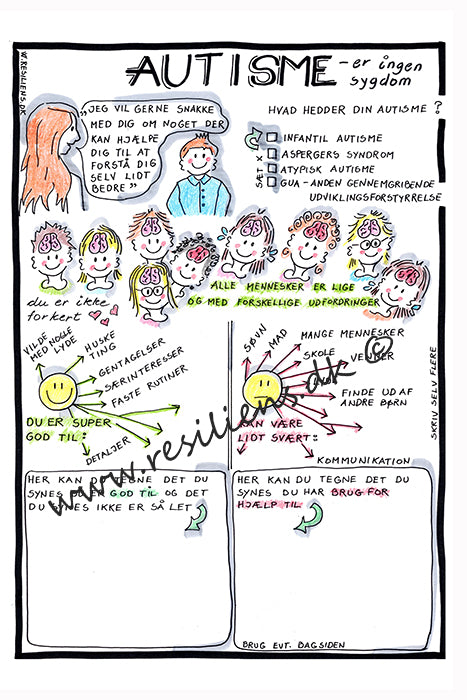 W.RESILIENS.DK
AUTISME
– er ingen
sygdom
"JEG VIL GERNE SNAKKE
MED DIG OM NOGET DER
KAN HJÆLPE
DIG TIL AT
FORSTÅ DIG
SELV LIDT
BEDRE"
HVAD HEDDER DIN AUTISME ?
SÆT X
INFANTIL AUTISME
ASPERGERS SYNDROM
ATYPISK AUTISME
GUA - ANDEN GENNEMGRIBENDE
UDVIKLINGSFORSTYRRELSE
ALLE MENNESKER ER LIGE
OG MED FORSKELLIGE UDFORDRINGER
du er ikke
forkert
VILDE
MED NOGLE
LYDE
HUSKE
TING
GENTAGELSER
SÆRINTERESSER
FASTE RUTINER
DETALJER
DU ER SUPER
GOD TIL:
SØVN
MAD
MANGE MENNESKER
SKOLE
VENNER
FINDE UD AF
ANDRE BØRN
KOMMUNIKATION
KAN VÆRE
LIDT SVÆRT:
SKRIV SELV FLERE
HER KAN DU TEGNE DET DU
SYNES DU ER GOD TIL OG DET
DU SYNES IKKE ER SÅ LET
HER KAN DU TEGNE DET DU
SYNES DU HAR BRUG FOR
HJÆLP TIL
BRUG EVT. BAGSIDEN
www.resiliens.dk ©